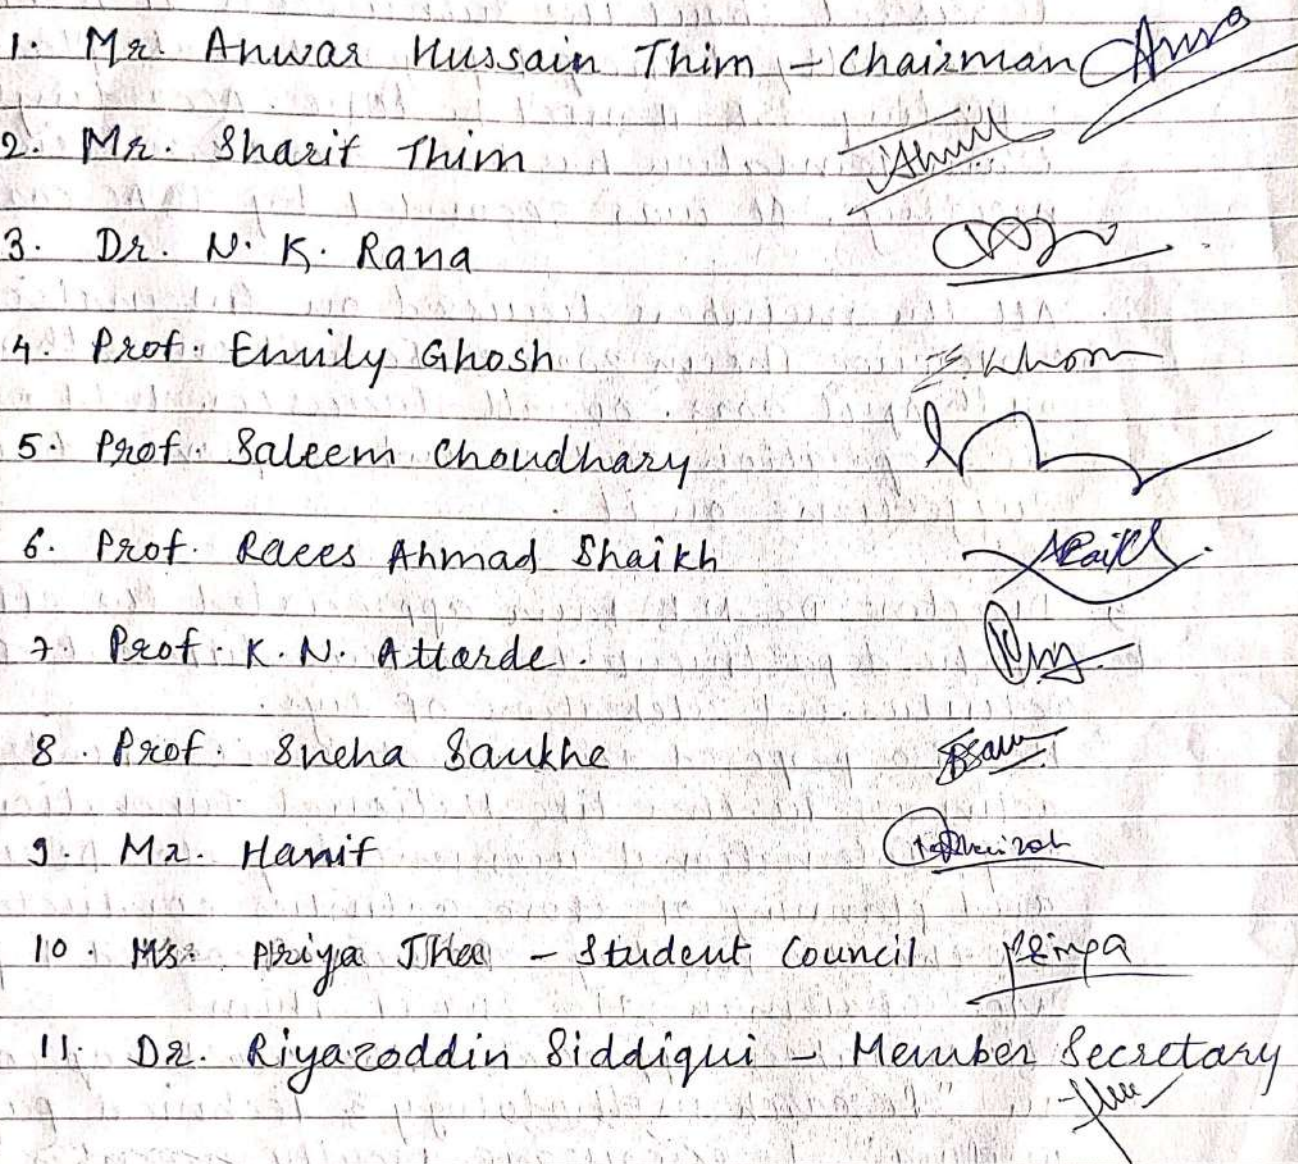 1. Mr. Anwar Hussain Thim - Chairman
2. Mr. Sharif Thim
3. Dr. N. K. Rana
4. Prof. Emily Ghosh
5. Prof. Saleem Choudhary
6. Prof. Raees Ahmad Shaikh
7. Prof. K. N. Attarde.
8. Prof. Sneha Saukhe
9. Mr. Hanif
10. Ms. Priya Jha - Student Council
11. Dr. Riyazoddin Siddiqui - Member Secretary